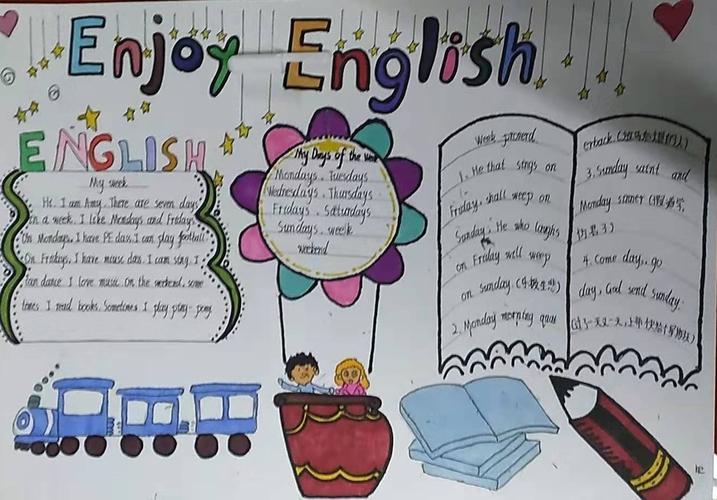 Enjoy English
ENGLISH
My week
Hi. I am Amy. There are seven days
in a week. I like Mondays and Fridays
On Mondays, I have PE class. I can play football
On Fridays, I have music class. I can sing. I
can dance. I love music. On the weekend, some
times I read books. Sometimes I play ping-pong
My Days of the week
Mondays. Tuesdays
Wednesdays. Thursdays
Fridays. Saturdays
Sundays. week
weekend
Week proverd
1. He that sings on
Friday, shall weep on
Sunday. He who laughs
on Friday will weep
on sunday. (乐极生悲)
2. Monday morning quar
3. Sunday saint and
Monday sinner
4. Come day, go
day, God send sunday.